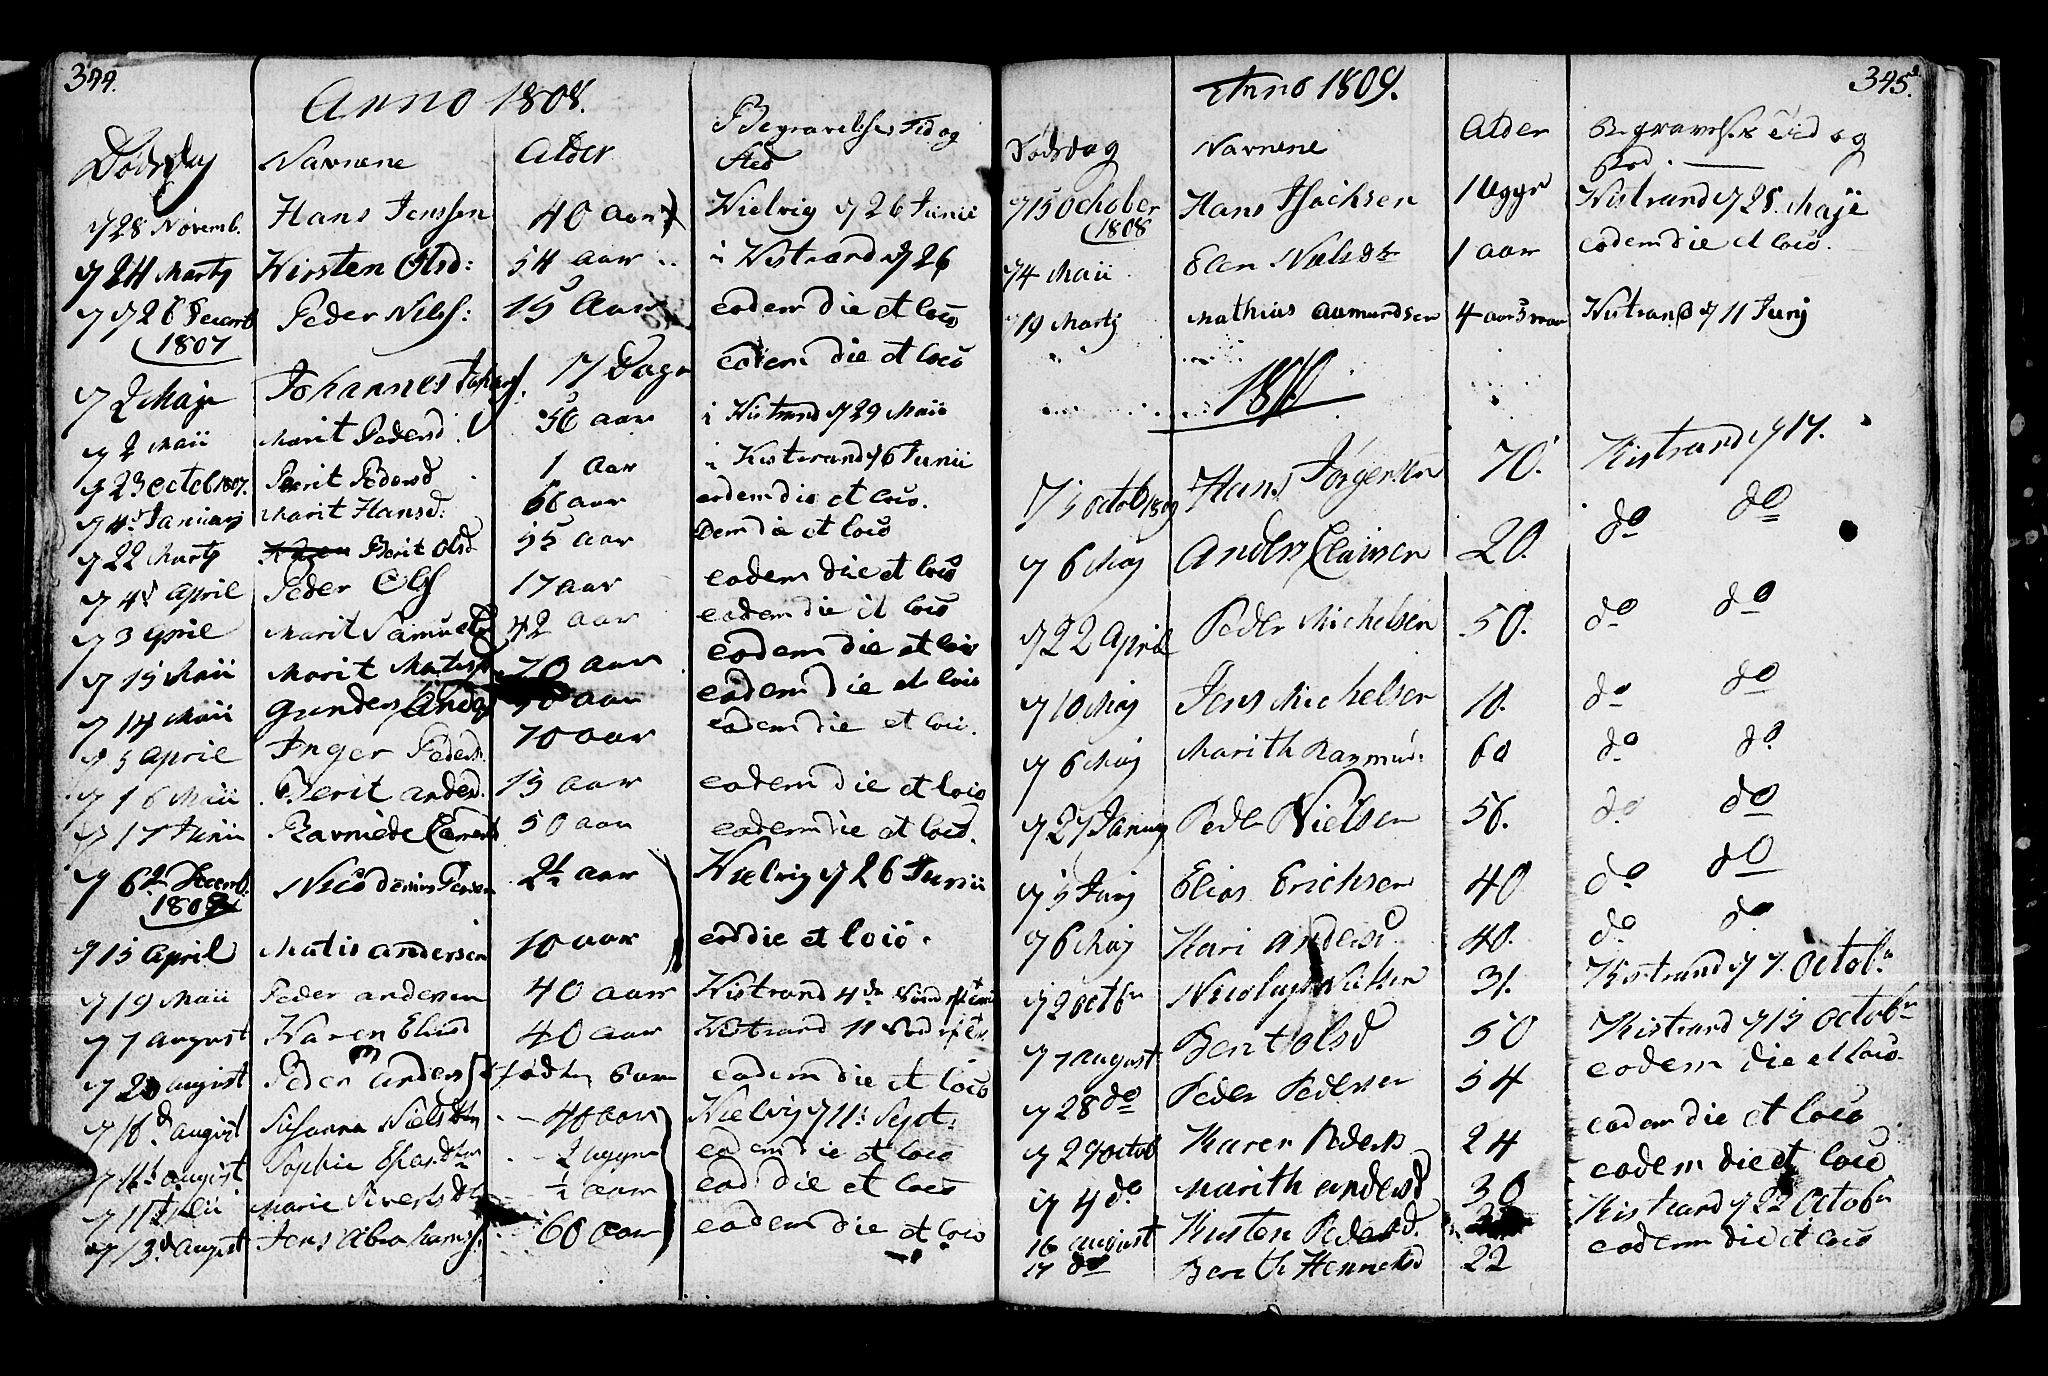 344.
Anno 1808.
Dødsdag Navnene Alder Begravelses Tid og
Sted
28 Novemb. Hans Jenssen 40 aar Kielvig 26 Junii
24 Marty Kirsten Olsd: 54 aar i Kistrand 26
26 Decemb Peder Nilss: 15 Aar eodem die et loco
1807
2 Maji Johannes 17 Dage eodem die et loco
2 Maii Marit Pedersd. 56 aar i Kistrand 29 Maii
23 Octob 1807. Berit Pedersd 1 Aar i Kistrand 6 Junii
4 Januarj Marit Hansd: 66 aar eodem die et loco.
22 Marty Berit Olsd 55 aar Dem die et loco
4 April Peder Olss 17 aar eodem die et loco
3 April Marit Samuels 42 aar eodem die et loco
15 Maii Marit 70 aar eodem die et loco
14 Maii Gunder 70 aar eodem die et loco
5 April Inger Peders 70 aar eodem die et loco.
16 Maii Berit andersd. 15 aar eodem die et loco
17 Junii 50 aar eodem die et loco.
6 Decemb. Nicodemus 2½ aar Kielvig 26 Junii
180
15 April Matis andersen 10 aar eod die et loco.
19 Maii Peder andersen 40 aar Kistrand 4de
7 august Karen Eliasd 40 aar Kistrand 11
20 august Peder anders 6 aar eodem die et loco
16 august Susanna Nielsdtr 40 aar Kielvig 11: Sept:
16 august Sophie dtr 2 uger eodem die et loco
11 Marie Siverts dtr ½ aar eod die et loco
13 august Jens Abrahamss: 60 aar eodem die et loco
345.
Anno 1809.
Dødsdag Navnene Alder Begravelses Tid og
Sted.
15 October Hans Isachsen 1 Uge Kistrand 28. Maje
1808
4 Maii Elen Nielsdtr 1 aar eodem die et loco.
19 Martj Mathias Aamundsen 4 aar Kistrand 11 Junj
1810
5 Octob 1809 Hans Jørgensen 70. Kistrand 17.
6 Maj Anders Clausen 20. do do
22 April Peder Michelsen 50. do do
10 Maj Jens Michelsen 10. do do
6 Maj Marith 60 do do
27 Januarj Peder Nielsen 56. do do
5 Junj Elias Erichsen 40 do do
6 Maj Kari Andersd. 40. do do
2 octbr Nicolay Nielsen 31. Kistrand 7. Octobr
7 august Berit olsd 50 Kistrand 15 Octobr
28 do Peder Pedersen 54 eodem die et loco
29 octob Karen Peders 24 eodem die et loco
4 do Marith andersd 30 eodem die et loco
16 august Kirsten Pedersd. Kistrand 22 Octobr
17 do Berith 22 eodem die et loco